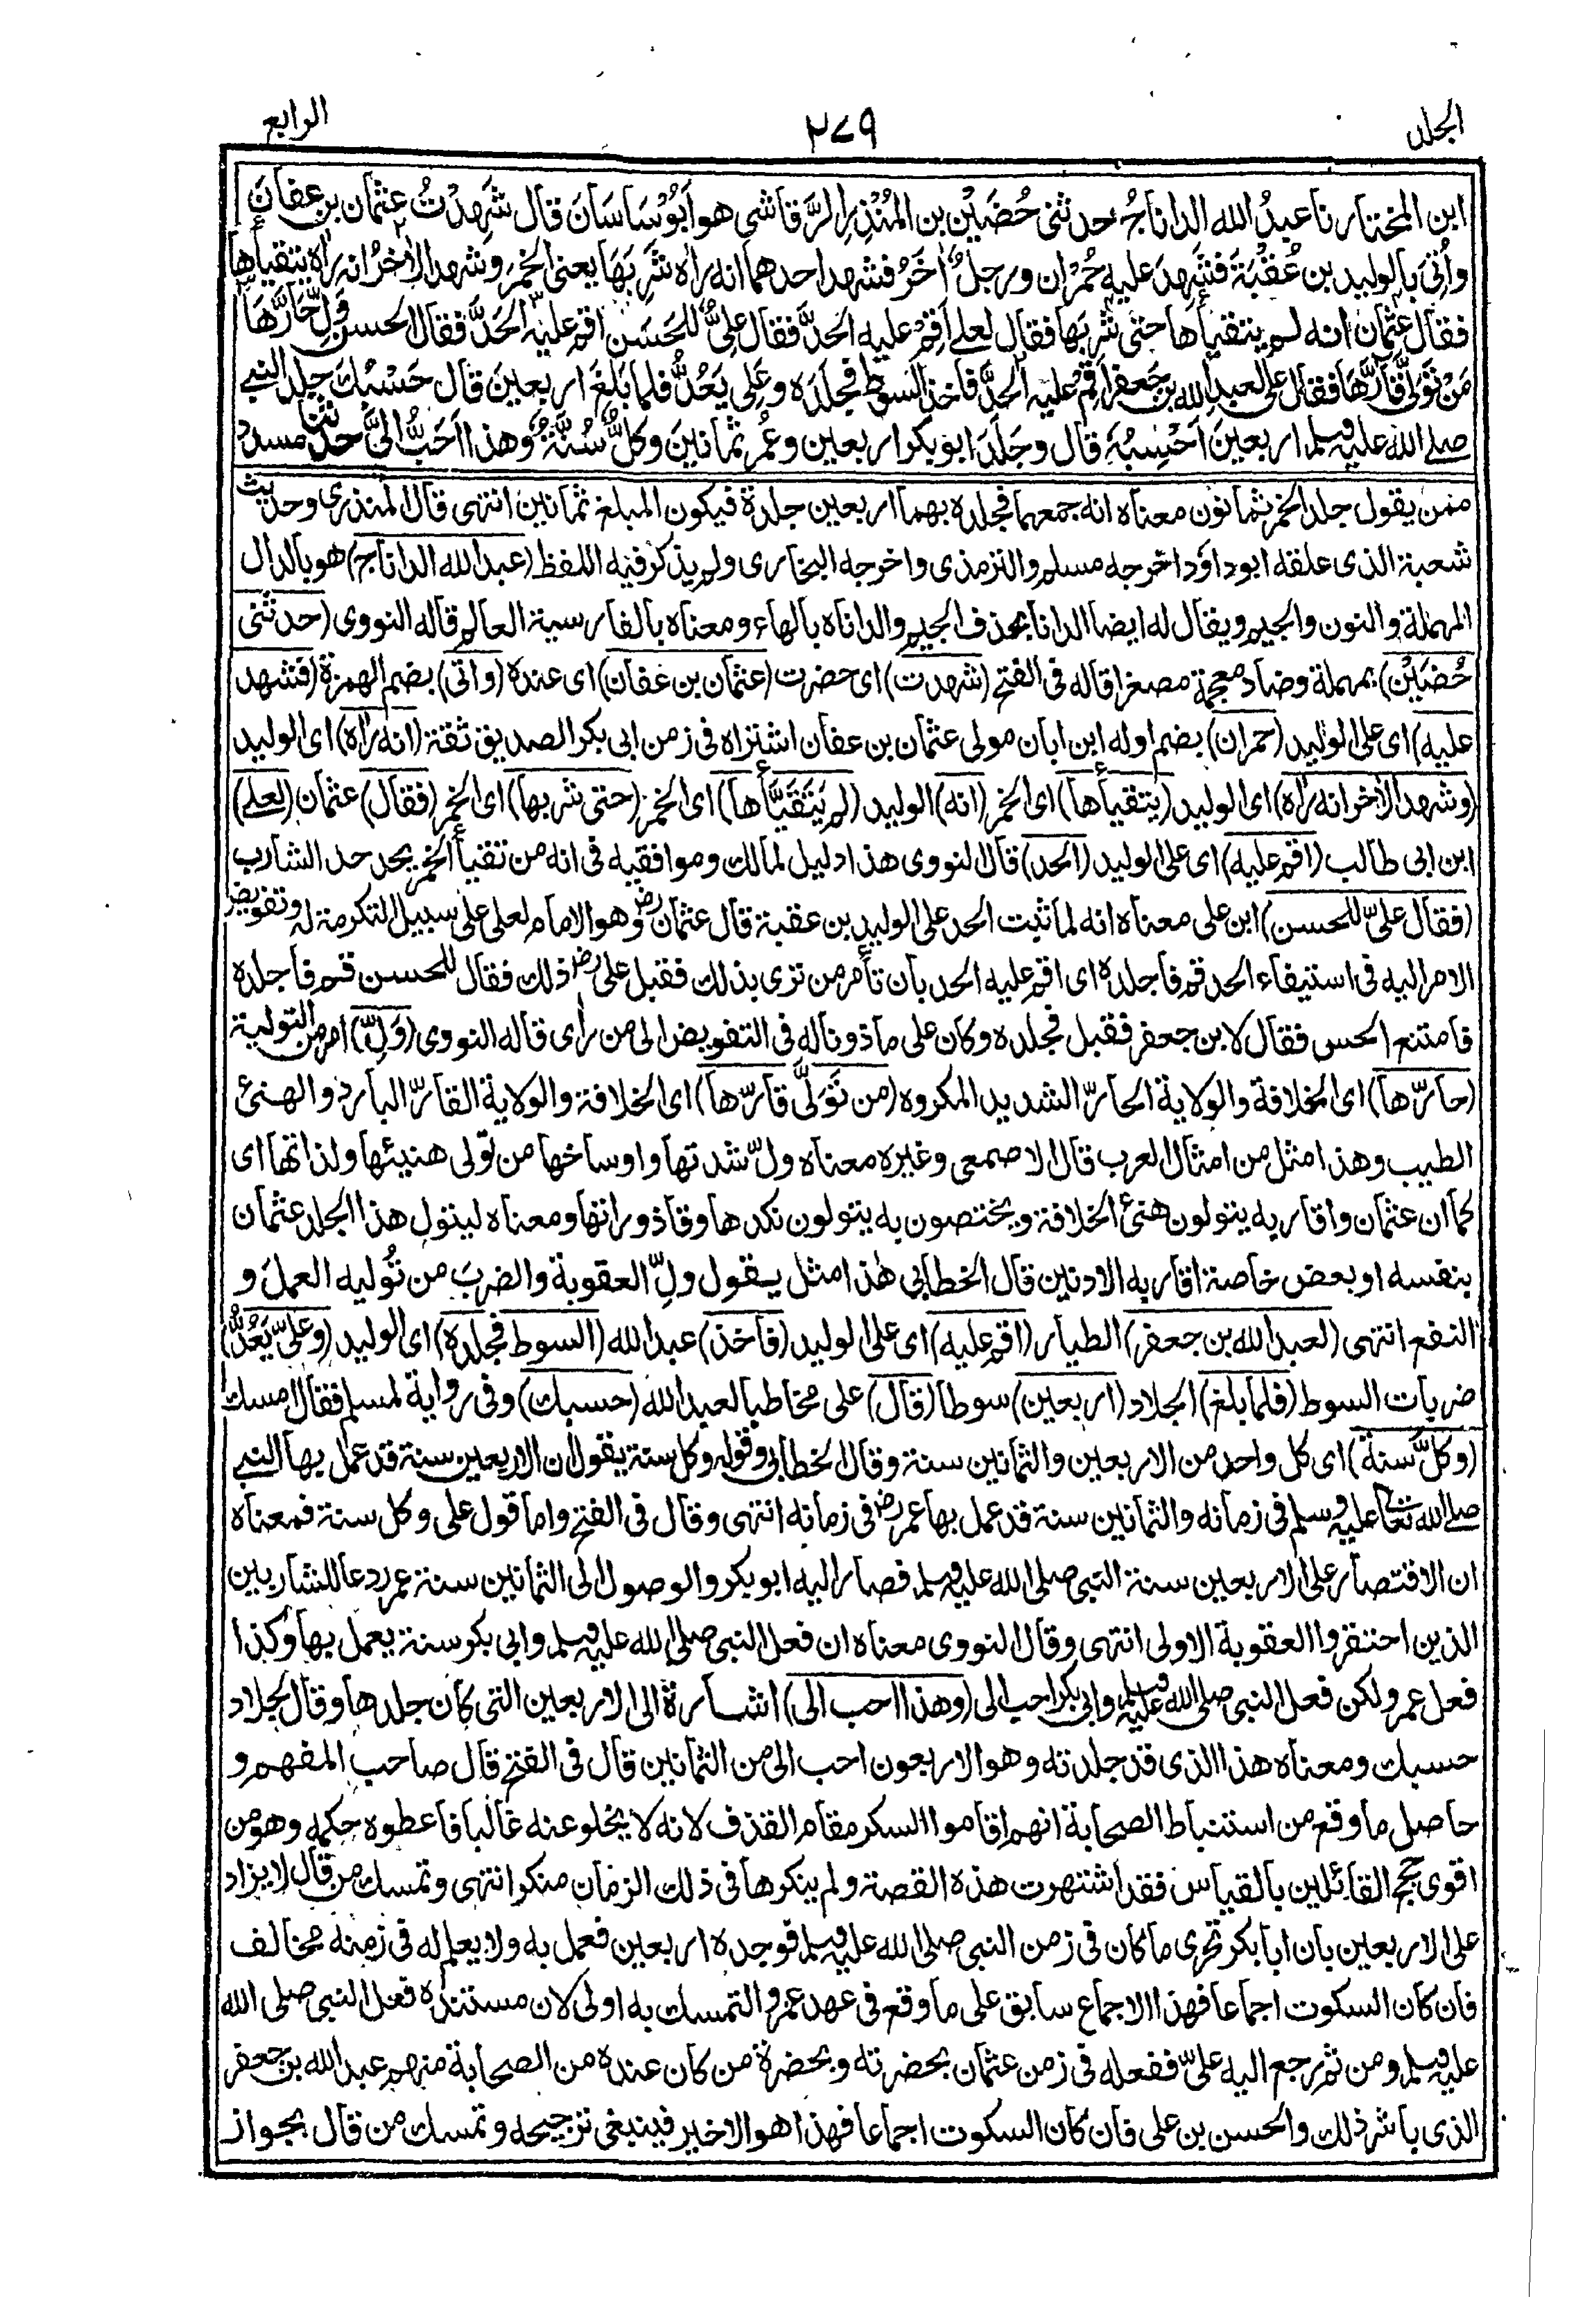 الجلد
٢٧٩
الرابع
ابن المختار نا عبدُ الله الداناجُ حدثني حُضَيْن بن المُنْذِرِ الرَّقاشي هو اَبُوْ سَاسَانَ قال شَهِدْتُ عثمان بن عفانَ
واُتِيَ بالوليد بن عُقْبَةَ فشَهِدَ عليه حُمْرَان ورجلٌ اٰخَرُ فشهد احدهما انه راٰه شَرِبَهَا يعني الخمرَ وشهد الاٰخرُ انه راٰه يتقيأها
فقال عثمان انه لم يتقيأها حتى شَرِبَها فقال لعلي اَقِمْ عليه الحدَّ فقال عليٌّ للحَسَن اقم عليه الحَدَّ فقال الحسن وَلِّ حَارَّهَا
مَنْ تَوَلَّى قَارَّهَا فقال علي لعبد الله بن جَعفر اقِمْ عليه الحدَّ فاخذ السَّوطَ فجلَدَه وعَلِي يَعُدُّ فلما بَلَغَ اربعينَ قال حَسْبُكَ جلد النبي
صلى الله عليه وسلم اربعينَ اَحْسِبُهُ قال وجَلَدَ ابو بكر اربعين وعُمر ثمانينَ وكلٌّ سُنَّةٌ وهذا احَبُّ الىَّ حدثنا مسدد
ممن يقول جلد الخمر ثمانون معناه انه جمعهما فجلده بهما اربعين جلدة فيكون المبلغ ثمانين انتهى قال المنذري وحديث
شعبة الذي علقه ابو داؤد اخرجه مسلم والترمذي واخرجه البخاري ولم يذكر فيه اللفظ (عبد الله الداناج) هو بالدال
المهملة والنون والجيم ويقال له ايضا الدانا بحذف الجيم والداناه بالهاء ومعناه بالفارسية العالم قاله النووي (حدثني
حُضَيْن) بمهملة وضاد معجمة مصغرا قاله في الفتح (شهدت) اى حضرت (عثمان بن عفان) اى عنده (واتى) بضم الهمزة (فشهد
عليه) اى على الوليد (حمران) بضم اوله ابن ابان مولى عثمان بن عفان اشتراه في زمن ابي بكر الصديق ثقة (انه راٰه) اى الوليد
(وشهد الاٰخر انه راٰه) اى الوليد (يتقيأها) اى الخمر (انه) الوليد (لم يَتَقَيَّأها) اى الخمر (حتى شربها) اى الخمر (فقال) عثمان (لعلي)
ابن ابي طالب (اقم عليه) اى على الوليد (الحد) قال النووي هذا دليل لمالك وموافقيه في انه من تقيأ الخمر يحد حد الشارب
(فقال عليّ للحسن) ابن علي معناه انه لما ثبت الحد على الوليد بن عقبة قال عثمان رض وهو الامام لعلي على سبيل التكرمة له وتفويض
الامر اليه في استيفاء الحد قم فاجلده اى اقم عليه الحد بان تأمر من ترى بذلك فقبل علي رض ذلك فقال للحسن قم فاجلده
فامتنع الحسن فقال لابن جعفر فقبل فجلده وكان علي ماذونا له في التفويض الى من رأى قاله النووي (وَلِّ) امر من التولية
(حارّها) اى الخلافة والولاية الحارّ الشديد المكروه (من تَوَلَّى قارّها) اى الخلافة والولاية القارّ البارد والهنئ
الطيب وهذا مثل من امثال العرب قال الاصمعي وغيره معناه ولّ شدتها واوساخها من تولى هنيئها ولذاتها اى
كما ان عثمان واقاربه يتولون هنئ الخلافة ويختصون به يتولون نكدها وقاذوراتها ومعناه ليتول هذا الجلد عثمان
بنفسه او بعض خاصة اقاربه الادنين قال الخطابي هٰذا مثل يقول ولِّ العقوبة والضربَ من تُوليه العملَ و
النفع انتهى (لعبد الله بن جعفر) الطيار (اقم عليه) اى على الوليد (فاخذ) عبد الله (السوط فجلده) اى الوليد (وعليّ يَعُدُّ)
ضربات السوط (فلما بلغ) الجلاد (اربعين) سوطا (قال) علي مخاطبا لعبد الله (حسبك) وفي رواية لمسلم فقال امسك
(وكلٌّ سنة) اى كل واحد من الاربعين والثمانين سنة وقال الخطابي وقوله وكل سنة يقول ان الاربعين سنة قد عمل بها النبي
صلى الله تعالى عليه وسلم في زمانه والثمانين سنة قد عمل بها عمر رض في زمانه انتهى وقال في الفتح واما قول علي وكل سنة فمعناه
ان الاقتصار على الاربعين سنة النبي صلى الله عليه وسلم فصار اليه ابو بكر والوصول الى الثمانين سنة عمر ردعا للشاربين
الذين احتقروا العقوبة الاولى انتهى وقال النووي معناه ان فعل النبي صلى الله عليه وسلم وابي بكر سنة يعمل بها وكذا
فعل عمر ولكن فعل النبي صلى الله عليه وسلم وابي بكر احب الى (وهذا احب الى) اشارة الى الاربعين التي كان جلدها وقال لجلاد
حسبك ومعناه هذا الذي قد جلدته وهو الاربعون احب الى من الثمانين قال في الفتح قال صاحب المفهم و
حاصل ما وقع من استنباط الصحابة انهم اقاموا السكر مقام القذف لانه لا يخلو عنه غالبا فاعطوه حكمه وهو من
اقوى حجج القائلين بالقياس فقد اشتهرت هذه القصة ولم ينكرها في ذلك الزمان منكر انتهى وتمسك من قال لا يزاد
على الاربعين بان ابا بكر تحرى ما كان في زمن النبي صلى الله عليه وسلم فوجده اربعين فعمل به ولا يعلم له في زمنه مخالف
فان كان السكوت اجماعا فهذا الاجماع سابق على ما وقع في عهد عمر والتمسك به اولى لان مستنده فعل النبي صلى الله
عليه وسلم ومن ثم رجع اليه عليّ ففعله في زمن عثمان بحضرته وبحضرة من كان عنده من الصحابة منهم عبد الله بن جعفر
الذي باشر ذلك والحسن بن علي فان كان السكوت اجماعا فهذا هو الاخير فينبغي ترجيحه وتمسك من قال بجواز